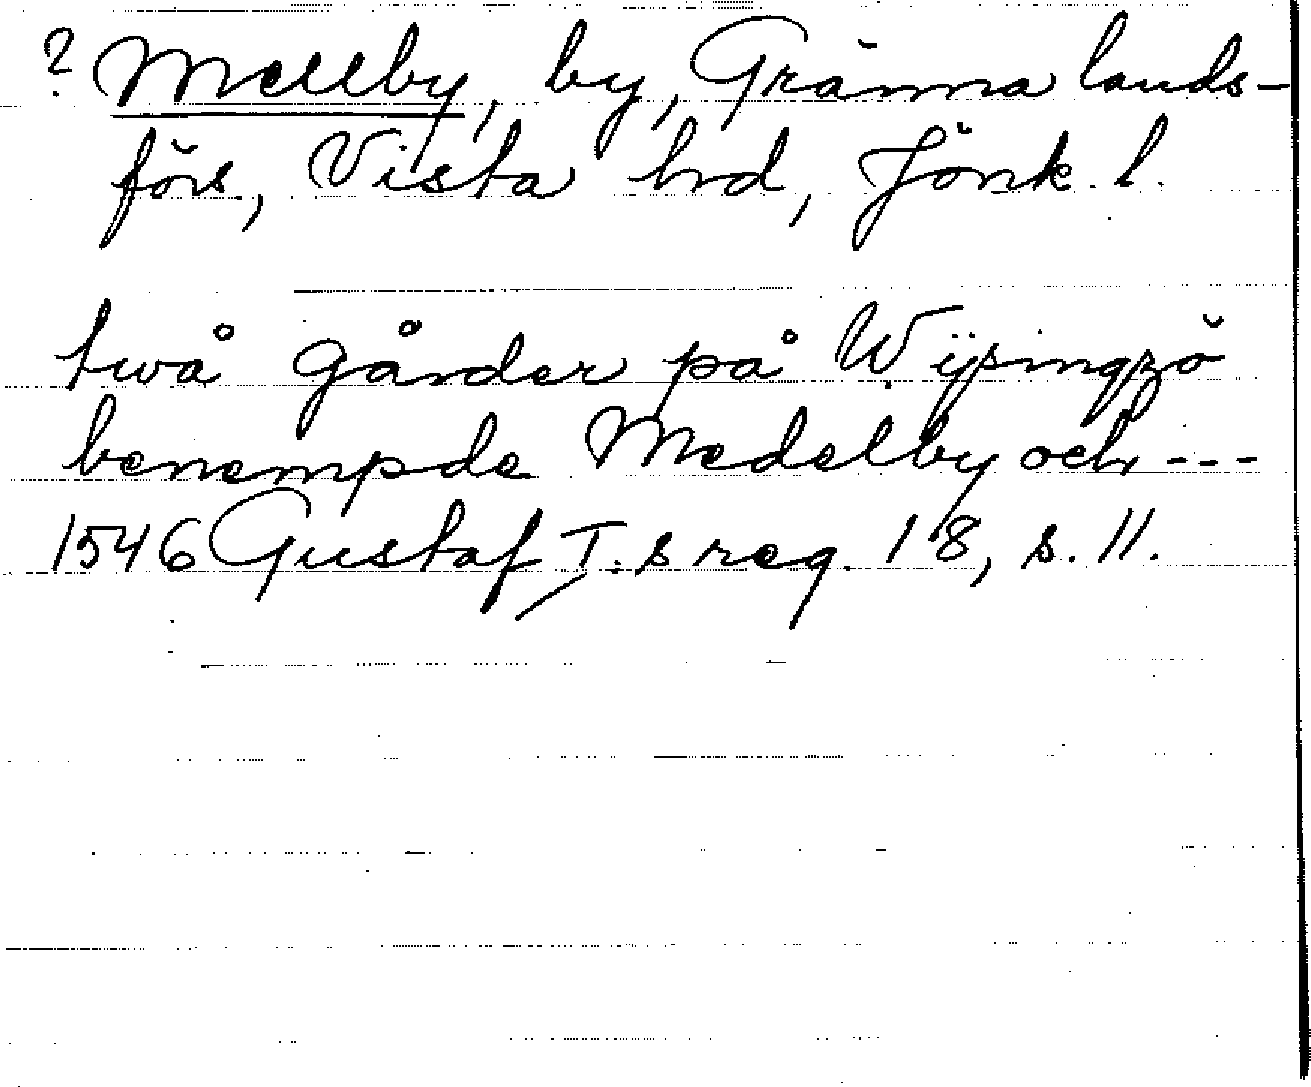 ? Mellby, by, Gränna lands-
förs, Vista hrd, Jönk. l.
twå gårder på Wÿsingzö
benempde Medelby och ---
1546 Gustaf I:s reg. 18, s. 11.